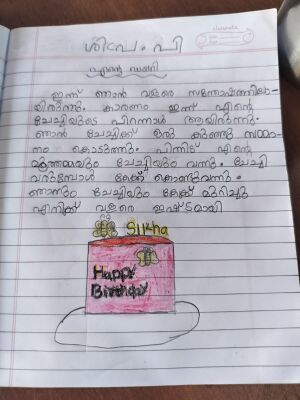 classmate
ശിഖ. പി
എന്റെ ഡയറി
ഇന്ന് ഞാൻ വളരെ സന്തോഷത്തിലാ-
യിരുന്നു. കാരണം ഇന്ന് എന്റെ
ചേച്ചിയുടെ പിറന്നാൾ ആയിരുന്നു.
ഞാൻ ചേച്ചിക്ക് ഒരു കുഞ്ഞു സമ്മാ-
നം കൊടുത്തു. പിന്നീട് എന്റെ
മൂത്തമ്മയും ചേച്ചിയും വന്നു. ചേച്ചി
വന്നപ്പോൾ കേക്ക് കൊണ്ടുവന്നു.
ഞാനും ചേച്ചിയും കേക്ക് മുറിച്ചു
എനിക്ക് വളരെ ഇഷ്ടമായി
Sikha
Happy
Birthday